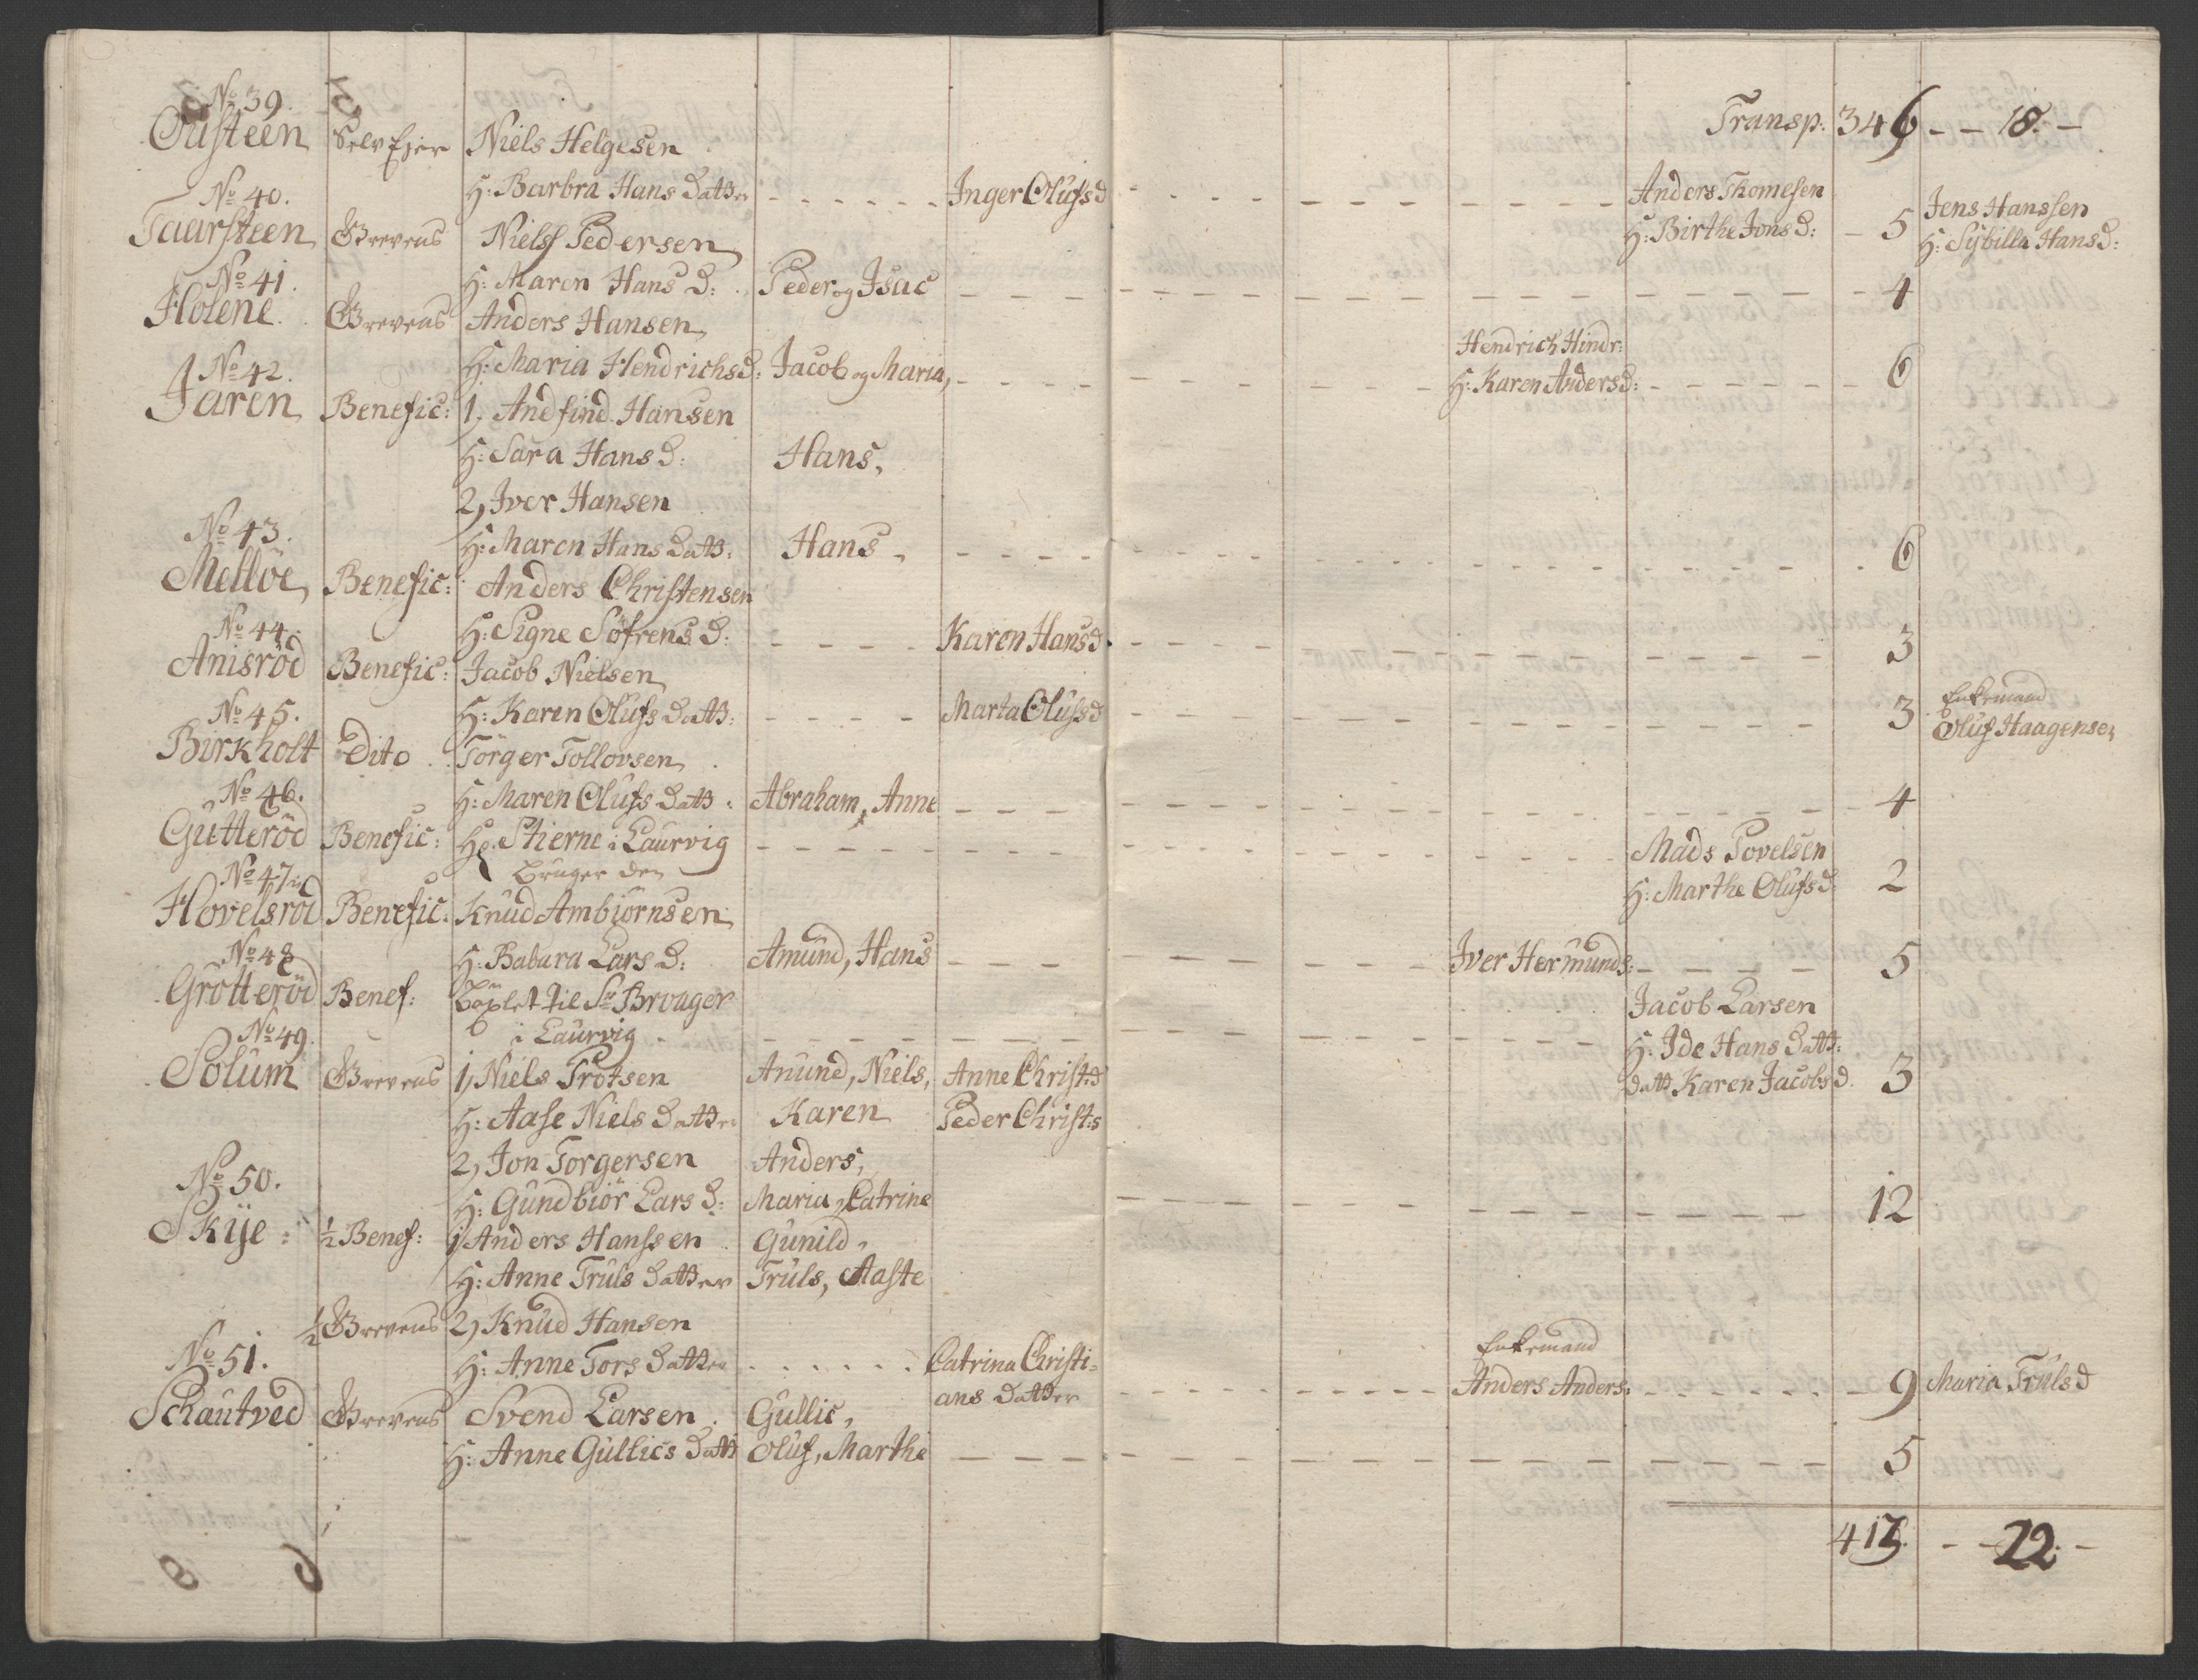 No 39.
Ousteen Selv Ejer Niels Helgesen Transp: 346 - - 18. -
H: Barbra Hans Datter - - - - - - Inger Olufs d - - - - - - Anders Thomesen
No 40. H: Birthe Jons d: - 5 Jens Hanssen
Taarsteen Grevens Niels Pedersen H: Sybilla Hans d:
No 41. H: Maren Hans D: Peder og Isac - - - - - - - - - 4
Holene. Grevens Anders Hansen
H: Maria Hendrichs d: Jacob og Maria, - - - - - - Hendrich Hindr:
H: Karen Anders d: - - - - - 6
No 42.
Jaren Benefic: 1, Andfind Hansen
H: Sara Hans D: Hans,
2, Iver Hansen
No 43. H: Maren Hans Datt: Hans, - - - - - - - - - - 6
Melløe Benefic: Anders Christensen
No 44. H: Signe Søfrens D: - - - - Karen Hans d. - - - - - - - 3
Anisrød Benefic: Jacob Nielsen
No 45. H: Karen Olufs Datt: - - - - Marta Olufs d - - - - - - - 3 Enkemand
Oluf Haagensen
Birkholt Dito Törger Tollovsen
No 46. H: Maren Olufs Datt: Abraham, Anne - - - - - - - - - 4
Gutterød Benefic: Hr. Stierne i Laurvig - - - - - - - - - Mads Povelsen
Bruger den H: Marthe Olufs d: 2
No 47.
Hovelsrød Benefic: Knud Ambiørnsen
No 48 H: Babara Lars D: Amund, Hans - - - - - - Iver Hermunds: - - - - 5
Grøtterød Benef: Bøxlet til Sr Brvager Jacob Larsen
i Laurvig - - - - - - - - - - H: Ide Hans Datt:
Datt Karen Jacobs d. 3
No 49.
Solum Grevens 1, Niels Trotsen Anund, Niels, Anne Christ: d
H: Aase Niels Datter Karen Peder Christ: s
2, Jon Torgersen Anders,
H: Gundbiør Lars D: Maria, Catrine - - - - - - - - 12
No 50.
Skije: ½ Benef: 1, Anders Hanssen Gunild,
H: Anne Truls Datter Truls, Aaste
½ Grevens 2, Knud Hansen
H: Anne Tors Datter - - - - - - Catrina Christi=
ans Datter - - - - - - Enkemand
Anders Anders: - - - - - - 9 Maria Truls d
No 51.
Schautved Grevens Svend Larsen. Gullic,
H: Anne Gullics Datt Oluf, Marthe - - - - - - - - - 5
413. - - 22. -